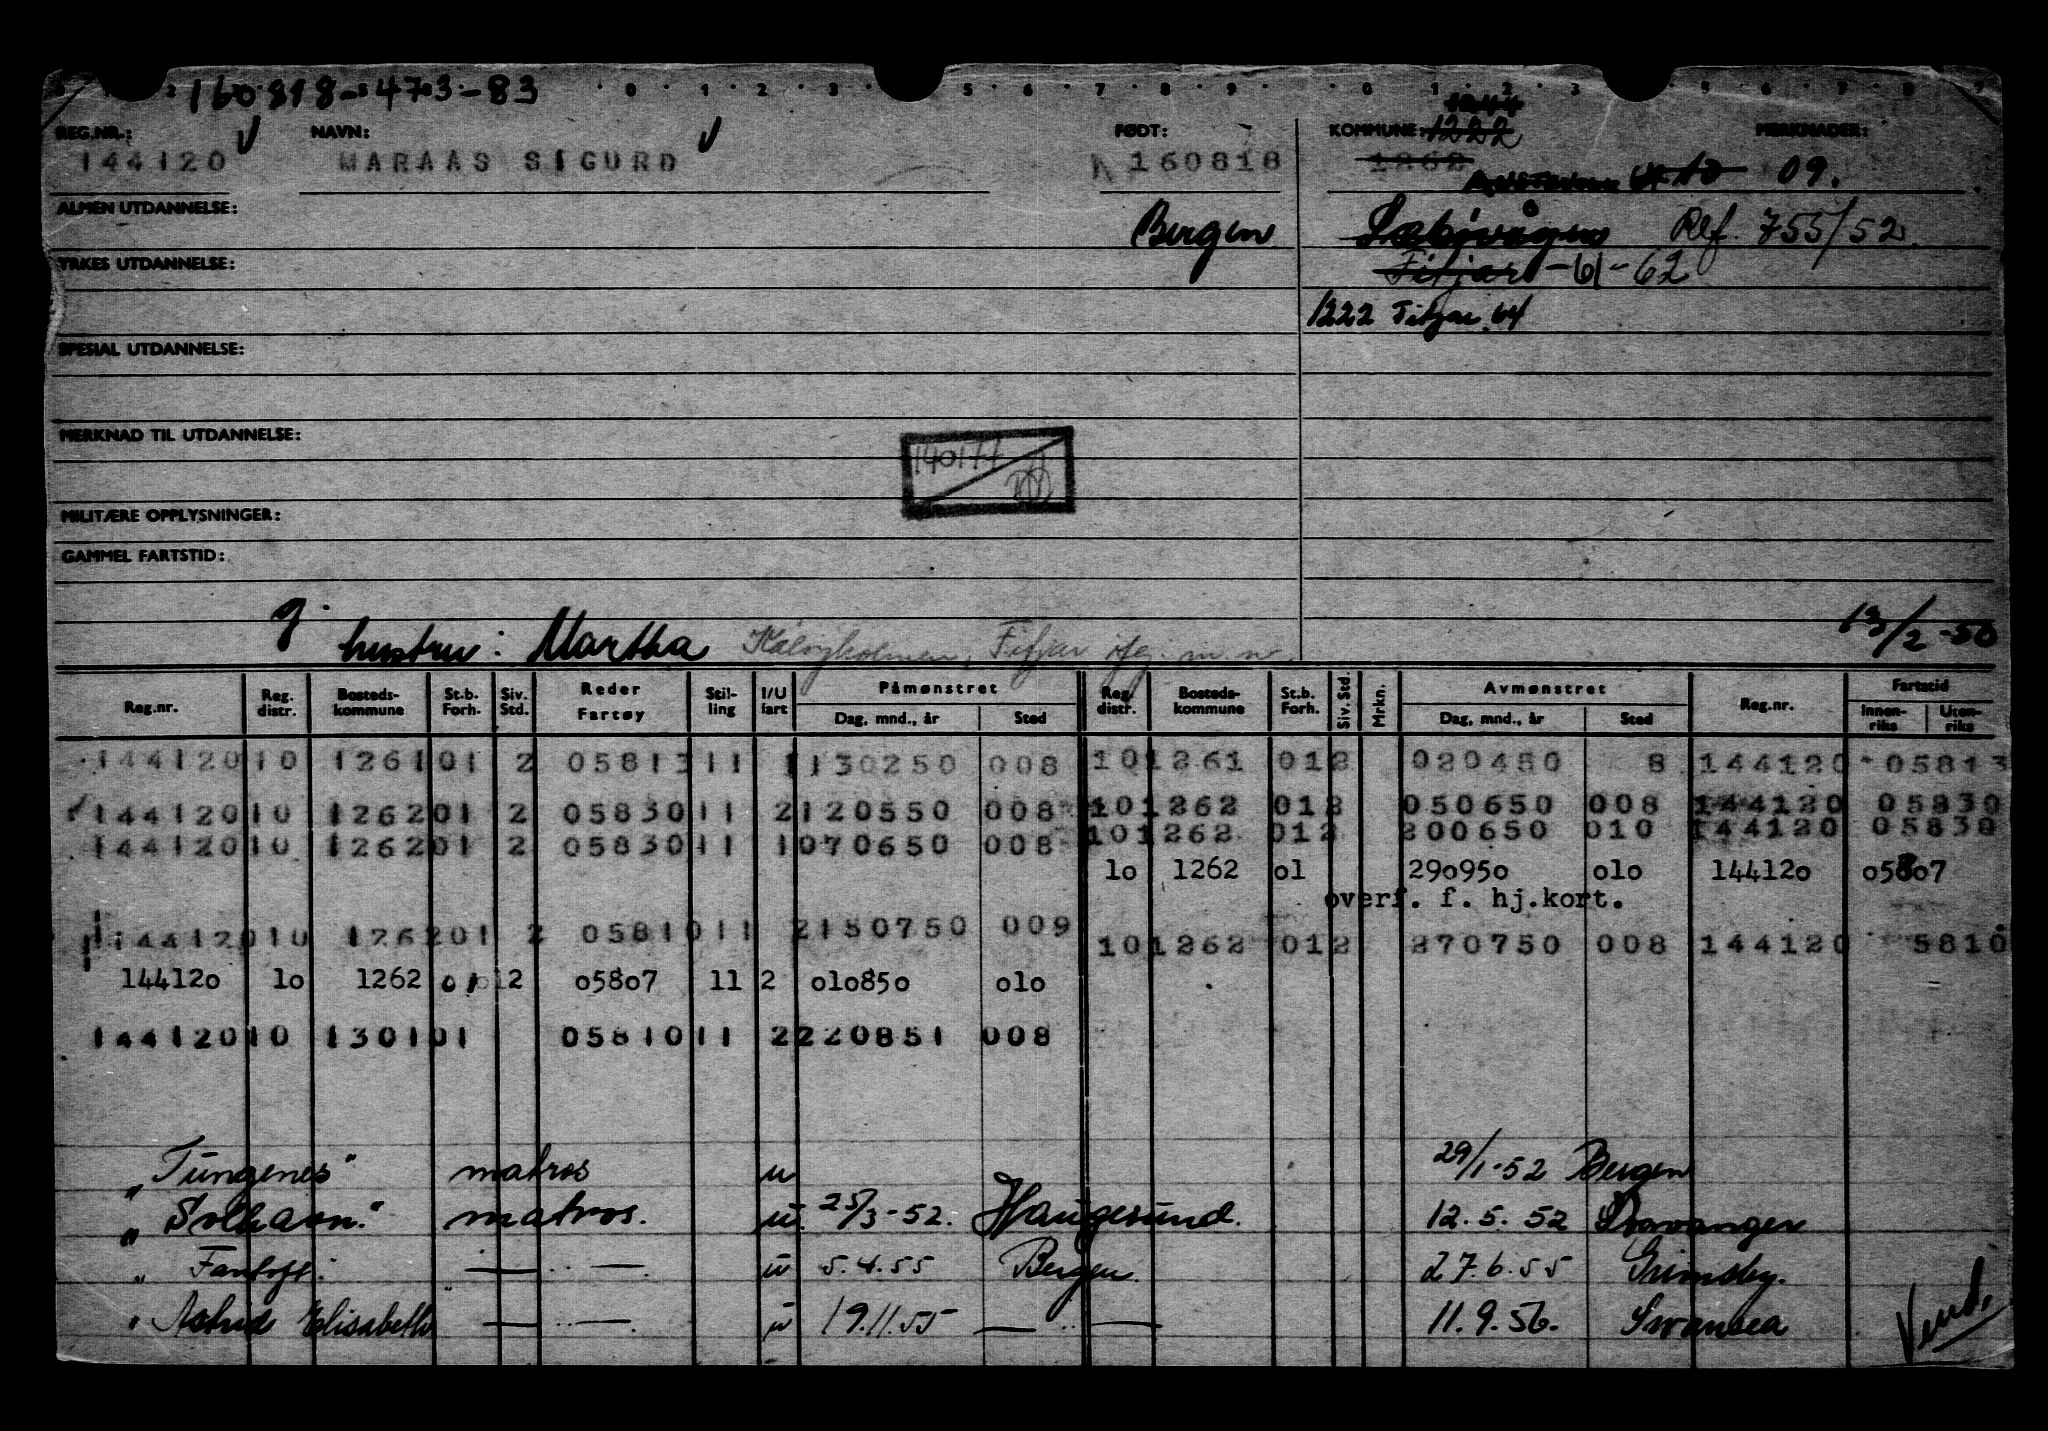 160818-4703-83
REG.NR.: NAVN: FØDT: KOMMUNE: 1222 MERKNADER:
144120 MARAAS SIGURD 160818 1262 09.
ALMEN UTDANNELSE: Bergen Sæbøvågen Ref. 755/52.
YRKES UTDANNELSE: Fitjar -61-62
1222 Fitjar 64
SPESIAL UTDANNELSE:
MERKNAD TIL UTDANNELSE:
140177
MILITÆRE OPPLYSNINGER:
GAMMEL FARTSTID:
g. hustru: Martha Kalvøyholmen, Fitjar 13/2-50
Reg.nr. Reg. distr. Bosteds-kommune St.b. Forh. Siv. Std. Reder Fartøy Stil-ling I/U fart Påmønstret Dag, mnd., år Sted Reg. distr. Bosteds-kommune St.b. Forh. Siv. Std. Mrkn. Avmønstret Dag, mnd., år Sted Reg.nr. Fartstid Innen-riks Uten-riks
144120 10 1261 01 2 05813 11 1 130250 008 10 1261 01 2 020450 8 144120 05813
144120 10 1262 01 2 05830 11 2 120550 008 10 1262 01 2 050650 008 144120 05830
144120 10 1262 01 2 05830 11 1 070650 008 10 1262 01 2 200650 010 144120 05830
lo 1262 ol 29o95o olo 14412o o58o7
overf. f. hj.kort.
144120 10 1262 01 2 05810 11 2 150750 009 10 1262 01 2 270750 008 144120 5810
14412o lo 1262 01 2 o58o7 11 2 olo85o olo
144120 10 1301 01 05810 11 2 220851 008
„Tungenes" matros u 29/1-52 Bergen
„Solhavn." matros. u. 25/3-52. Haugesund. 12.5.52 Stavanger
„ Fantoft. — .. — . u 5.4.55 Bergen. 27.6.55 Grimsby.
„ Astrid Elisabeth — .. — . u 19.11.55 — .. — 11.9.56. Swansea
Vend.